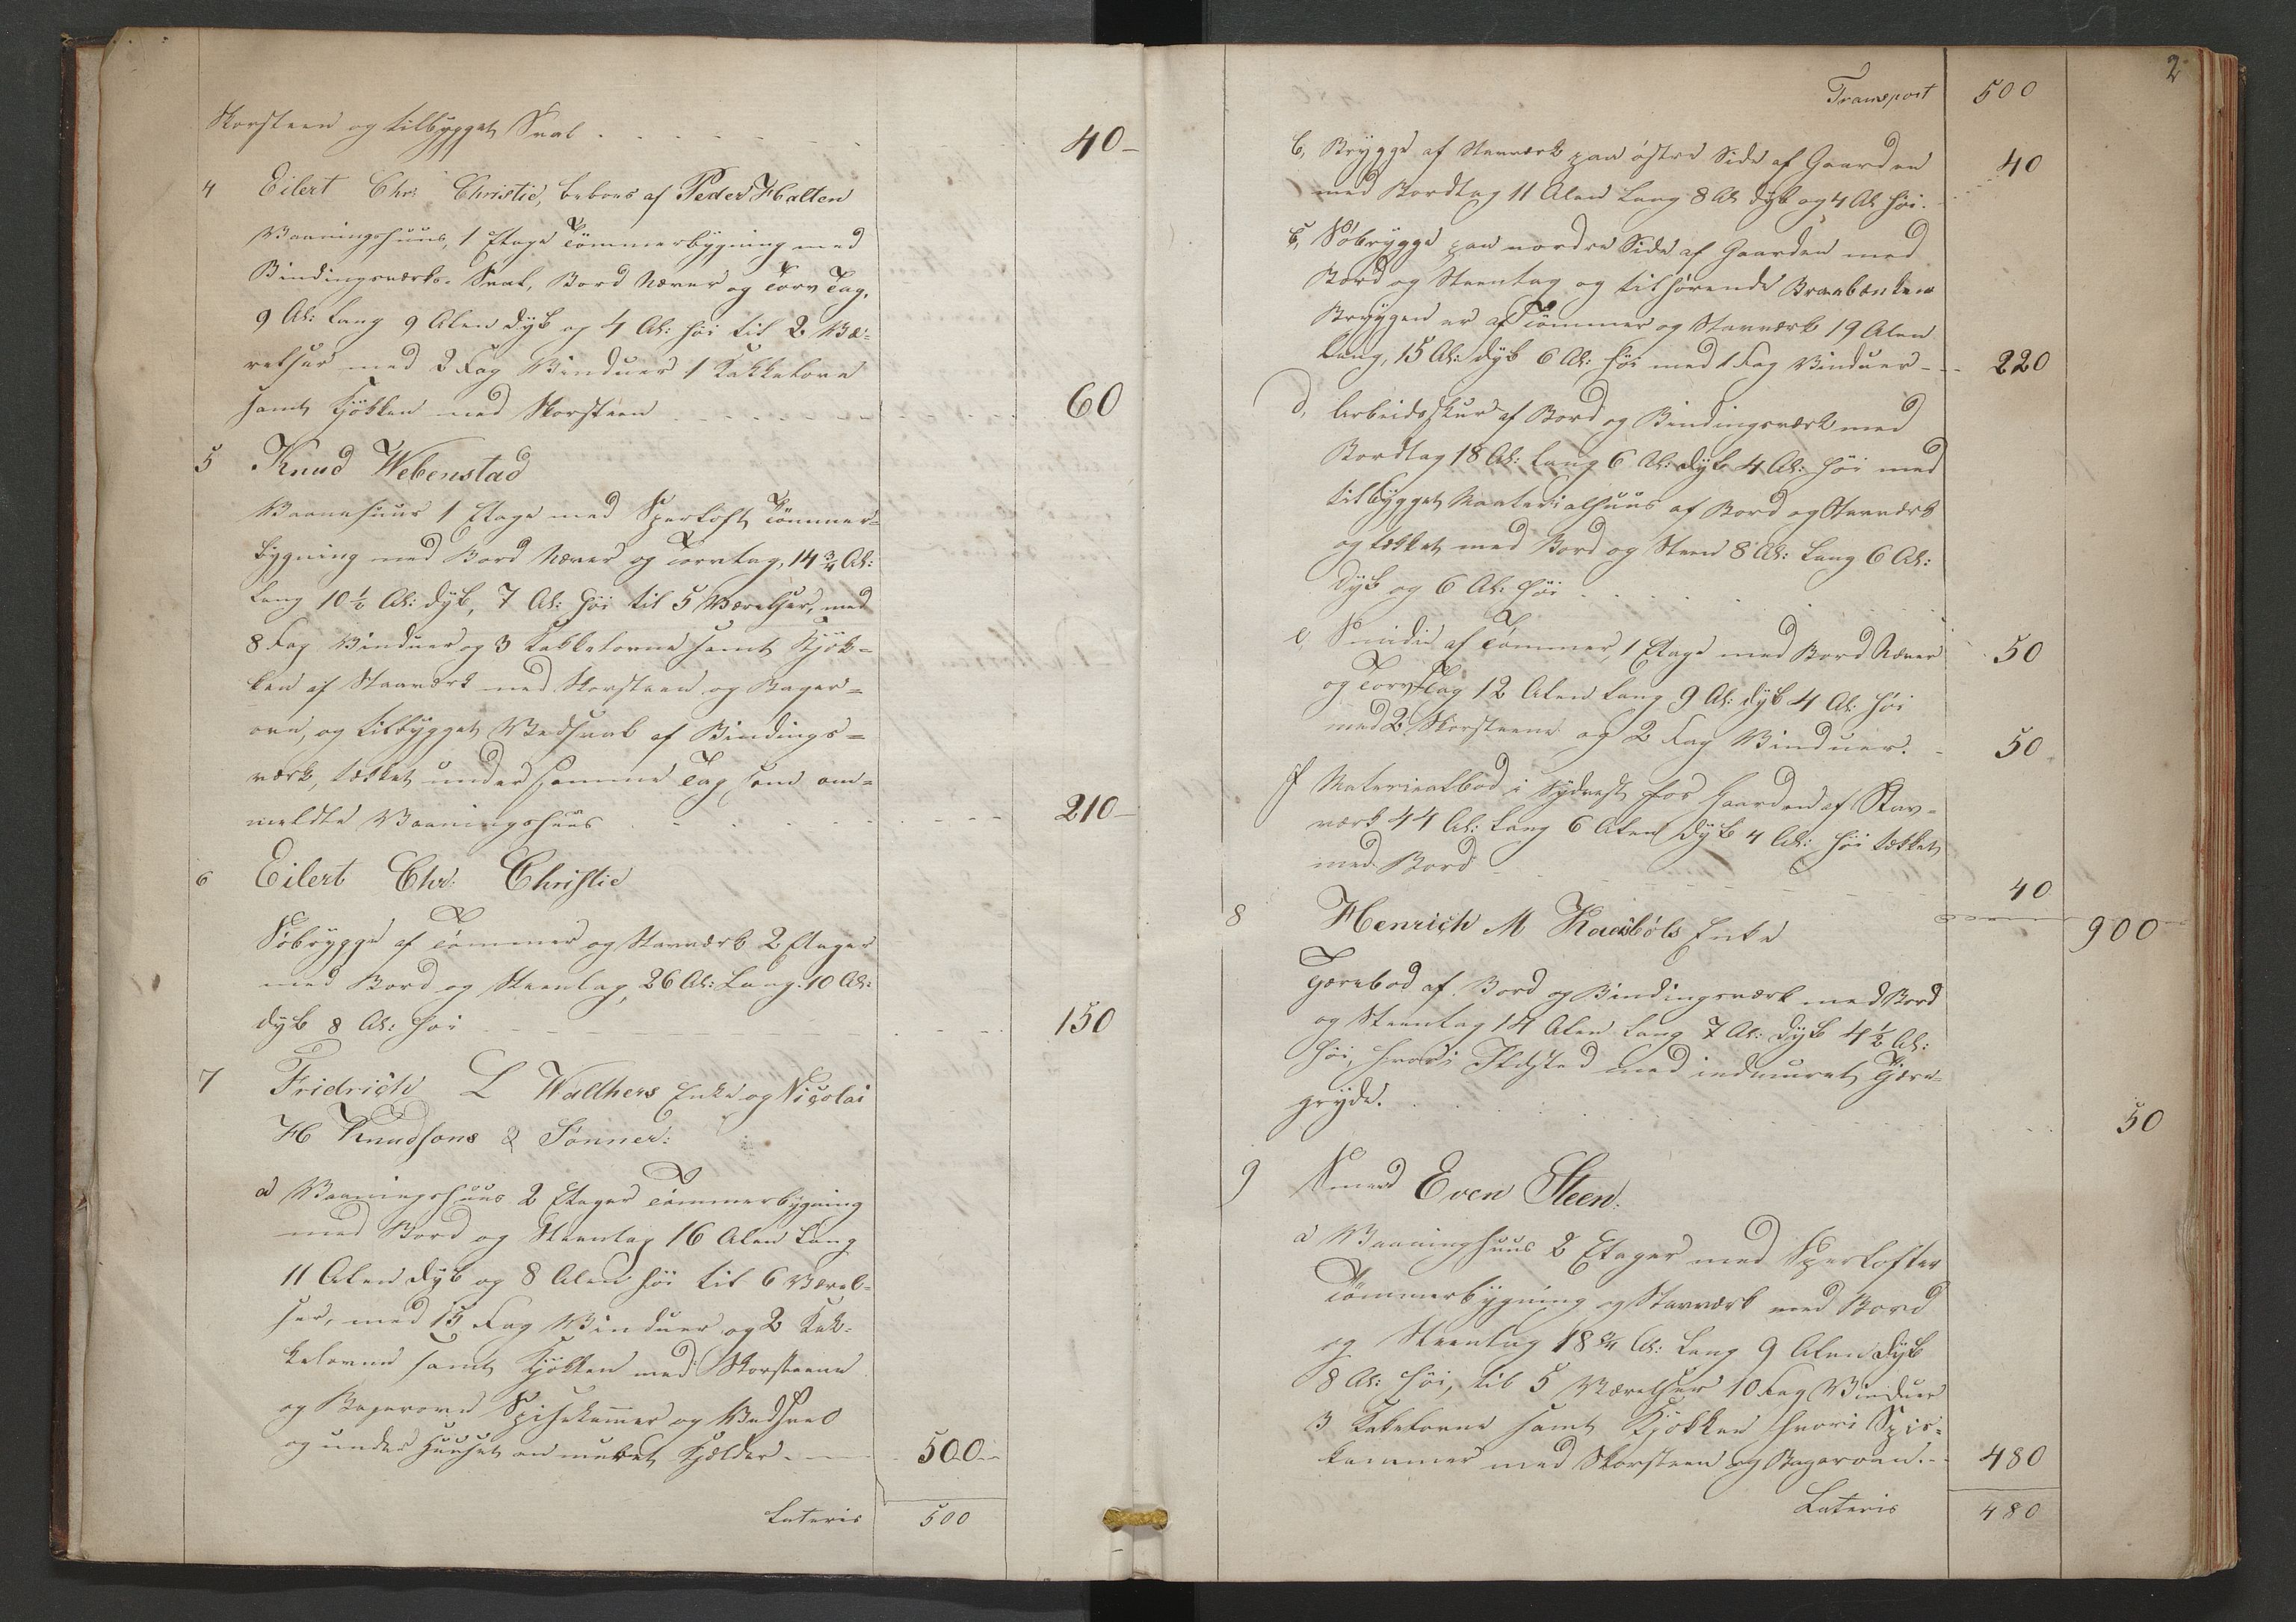 Skorsteen og tilbygget Sval 40
4 Eilert Chr: Christie, beboes af Peder Halten
Vaaningshuus, 1 Etage Tömmerbygning med
Bindingsværks-Sval, Bord Næver og Torv Tag,
9 Al: lang 9 Alen dyb og 4 Al: høi til 2 Væ=
relser med 3 Fag Vinduer 1 Kakkelovn
samt Kjökken med Skorsteen 60
5 Knud Webenstad
Vaanehuus 1 Etage med Sperloft Tömmer=
bygning med Bord Næver og Torvtag, 14 3/4 Al:
lang 10 1/2 Al: dyb, 7 Al: høi til 5 Værelser, med
8 Fag Vinduer og 3 Kakkelovne samt Kjök=
ken af Stavværk med Skorsteen og Bager=
ovn, og tilbygget Vedsval af Bindings=
værk, tækket under samme Tag som om=
meldte Vaaningshuus 210
6 Eilert Chr: Christie
Söbrygge af Tömmer og Stavværk 2 Etager
med Bord og Steentag, 26 Al: Lang 10 Al:
dyb 8 Al: høi 150
7 Fridrich L Walthers Enke og Nicolai
H Knudsons & Sönner:
a Vaaningshuus 2 Etager Tömmerbygning
med Bord og Steentag 16 Alen Lang
11 Alen dyb og 8 Alen høi til 6 Værel-
ser, med 15 Fag Vinduer og 2 Kak-
kelovne samt Kjökken med Skorsteene
og Bagerovn Spisekammer og Vedsval
og under Huuset en muret Kjelder 500
Lateris 500
2
Transport 500
b, Brygge af Stavværk paa östre Side af Gaarden
med Bordtag 11 Alen lang 8 Al dyb og 4 Al høi. 40
c, Söbrygge paa nordre Side af Gaarden med
Bord og Steentag og tilhörende Braabænken
Bryggen er af Tömmer og Stavværk 19 Alen
lang, 15 Al: dyb 6 Al: høi med 1 Fag Vinduer 220
d, Arbeidsskuur af Bord og Bindingsværk med
Bordtag 18 Al: lang 6 Al: dyb 4 Al: høi med
tilbygget Materialhuus af Bord og Stavværk
og tækket med Bord og Steen 8 Al: lang 6 Al:
dyb og 6 Al: høi 50
e, Smidie af Tömmer, 1 Etage med Bord Næver
og Torv Tag 12 Alen lang 9 Al: dyb 4 Al: høi
med 2 Skorsteene og 2 Fag Vinduer. 50
f Materialbod i Sydvest for Gaarden af Stav-
værk 44 Al: lang 6 Alen dyb 4 Al: høi tækket
med Bord 40
900
8 Henrich M Kaasböls Enke
Tjærebod af Bord og Bindingsværk med Bord
og Steentag 14 Alen lang 7 Al: dyb 4 1/2 Al:
høi, hvori Ildsted med indmuret Tjære-
gryde. 50
9 Smed Even Steen.
a Vaaninghuus 2 Etager med Sperlofter
Tömmerbygning og Stavværk med Bord
og Steentag 18 3/4 Al: lang 9 Alen dyb
8 Al: høi, til 5 Værelser 10 Fag Vinduer
3 Kakelovne samt Kjökken hvori Spis-
kammer med Skorsteen og Bagerovn. 480
Lateris 480